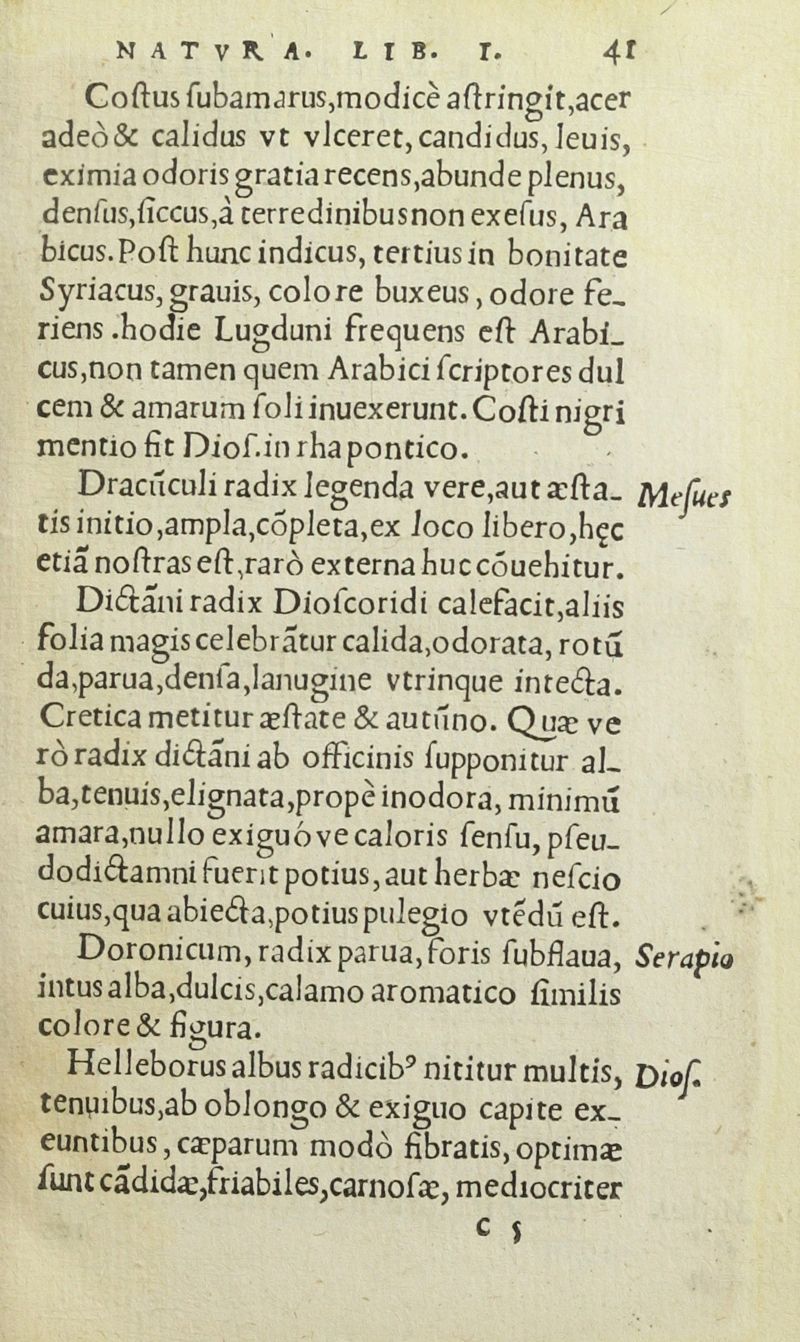 NATVRA. LIB. I. 41
Coſtus ſubamarus,modicè aſtringit,acer
adeò & calidus vt vlceret, candidus, leuis,
eximia odoris gratia recens,abunde plenus,
denſus,ſiccus,à terredinibus non exeſus, Ara
bicus. Poſt hunc indicus, tertius in bonitate
Syriacus, grauis, colore buxeus, odore fe-
riens .hodie Lugduni frequens eſt Arabi-
cus,non tamen quem Arabici ſcriptores dul
cem & amarum ſoli inuexerunt. Coſti nigri
mentio fit Dioſ.in rha pontico.
Dracūculi radix legenda vere,aut æſta- Meſues
tis initio,ampla,cōpleta,ex loco libero,hęc
etiā noſtras eſt,rarò externa huc cōuehitur.
Dictāni radix Dioſcoridi calefacit,aliis
folia magis celebrātur calida,odorata, rotū
da,parua,denſa,lanugine vtrinque intecta.
Cretica metitur æſtate & autūno. Quæ ve
rò radix dictāni ab officinis ſupponitur al-
ba,tenuis,elignata,propè inodora, minimū
amara,nullo exiguóve caloris ſenſu, pſeu-
dodictamni fuerit potius, aut herbæ neſcio
cuius,qua abiecta,potius pulegio vtēdū eſt.
Doronicum, radix parua, foris ſubflaua, Serapio
intus alba,dulcis,calamo aromatico ſimilis
colore & figura.
Helleborus albus radicibꝰ nititur multis, Dioſ.
tenuibus,ab oblongo & exiguo capite ex-
euntibus, cæparum modò fibratis, optimæ
ſunt cādidæ,friabiles,carnoſæ, mediocriter
c 5